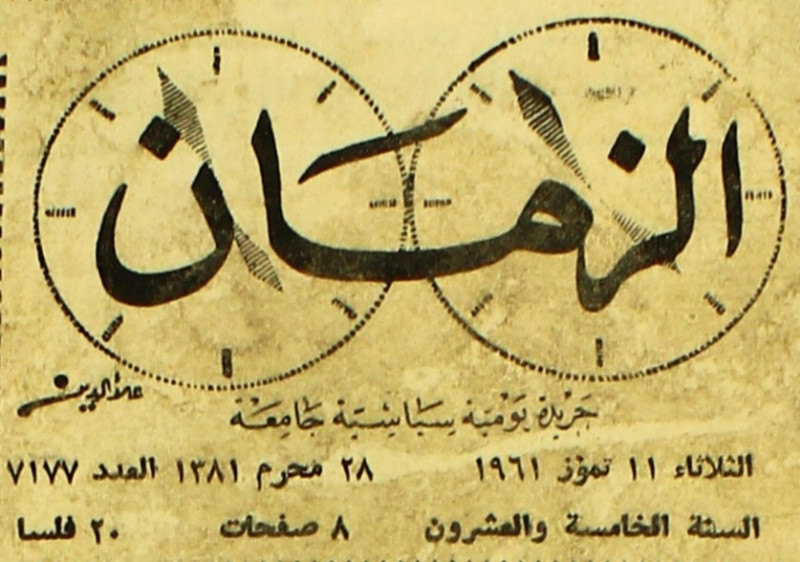 الزمان
علاءالدين
جريدة يومية سياسية جامعة
الثلاثاء ١١ تموز ١٩٦١ ٢٨ محرم ١٣٨١ العدد ٧١٧٧
السنة الخامسة والعشرون ٨ صفحات ٢٠ فلسا